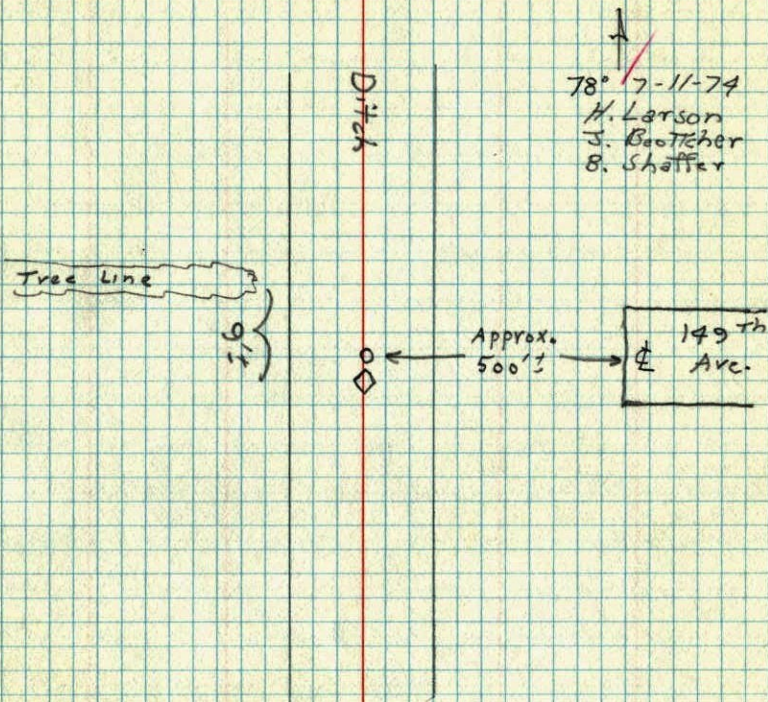 Ditch
78° 7-11-74
H. Larson
J. Boettcher
B. Shaffer
Tree Line
9'±
Approx.
500'±
℄ 149th
Ave.